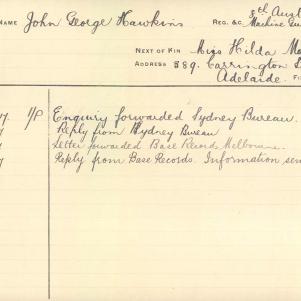 NAME John George Hawkins REG. &C. 8th Aust
Machine Gu
NEXT OF KIN Miss Hilda
ADDRESS 389. Carrington S
Adelaide. F
7. I/P Enquiry forwarded Sydney Bureau.
Reply from Sydney Bureau
Letter forwarded Base Records Melbourne.
7 Reply from Base Records. Information sen